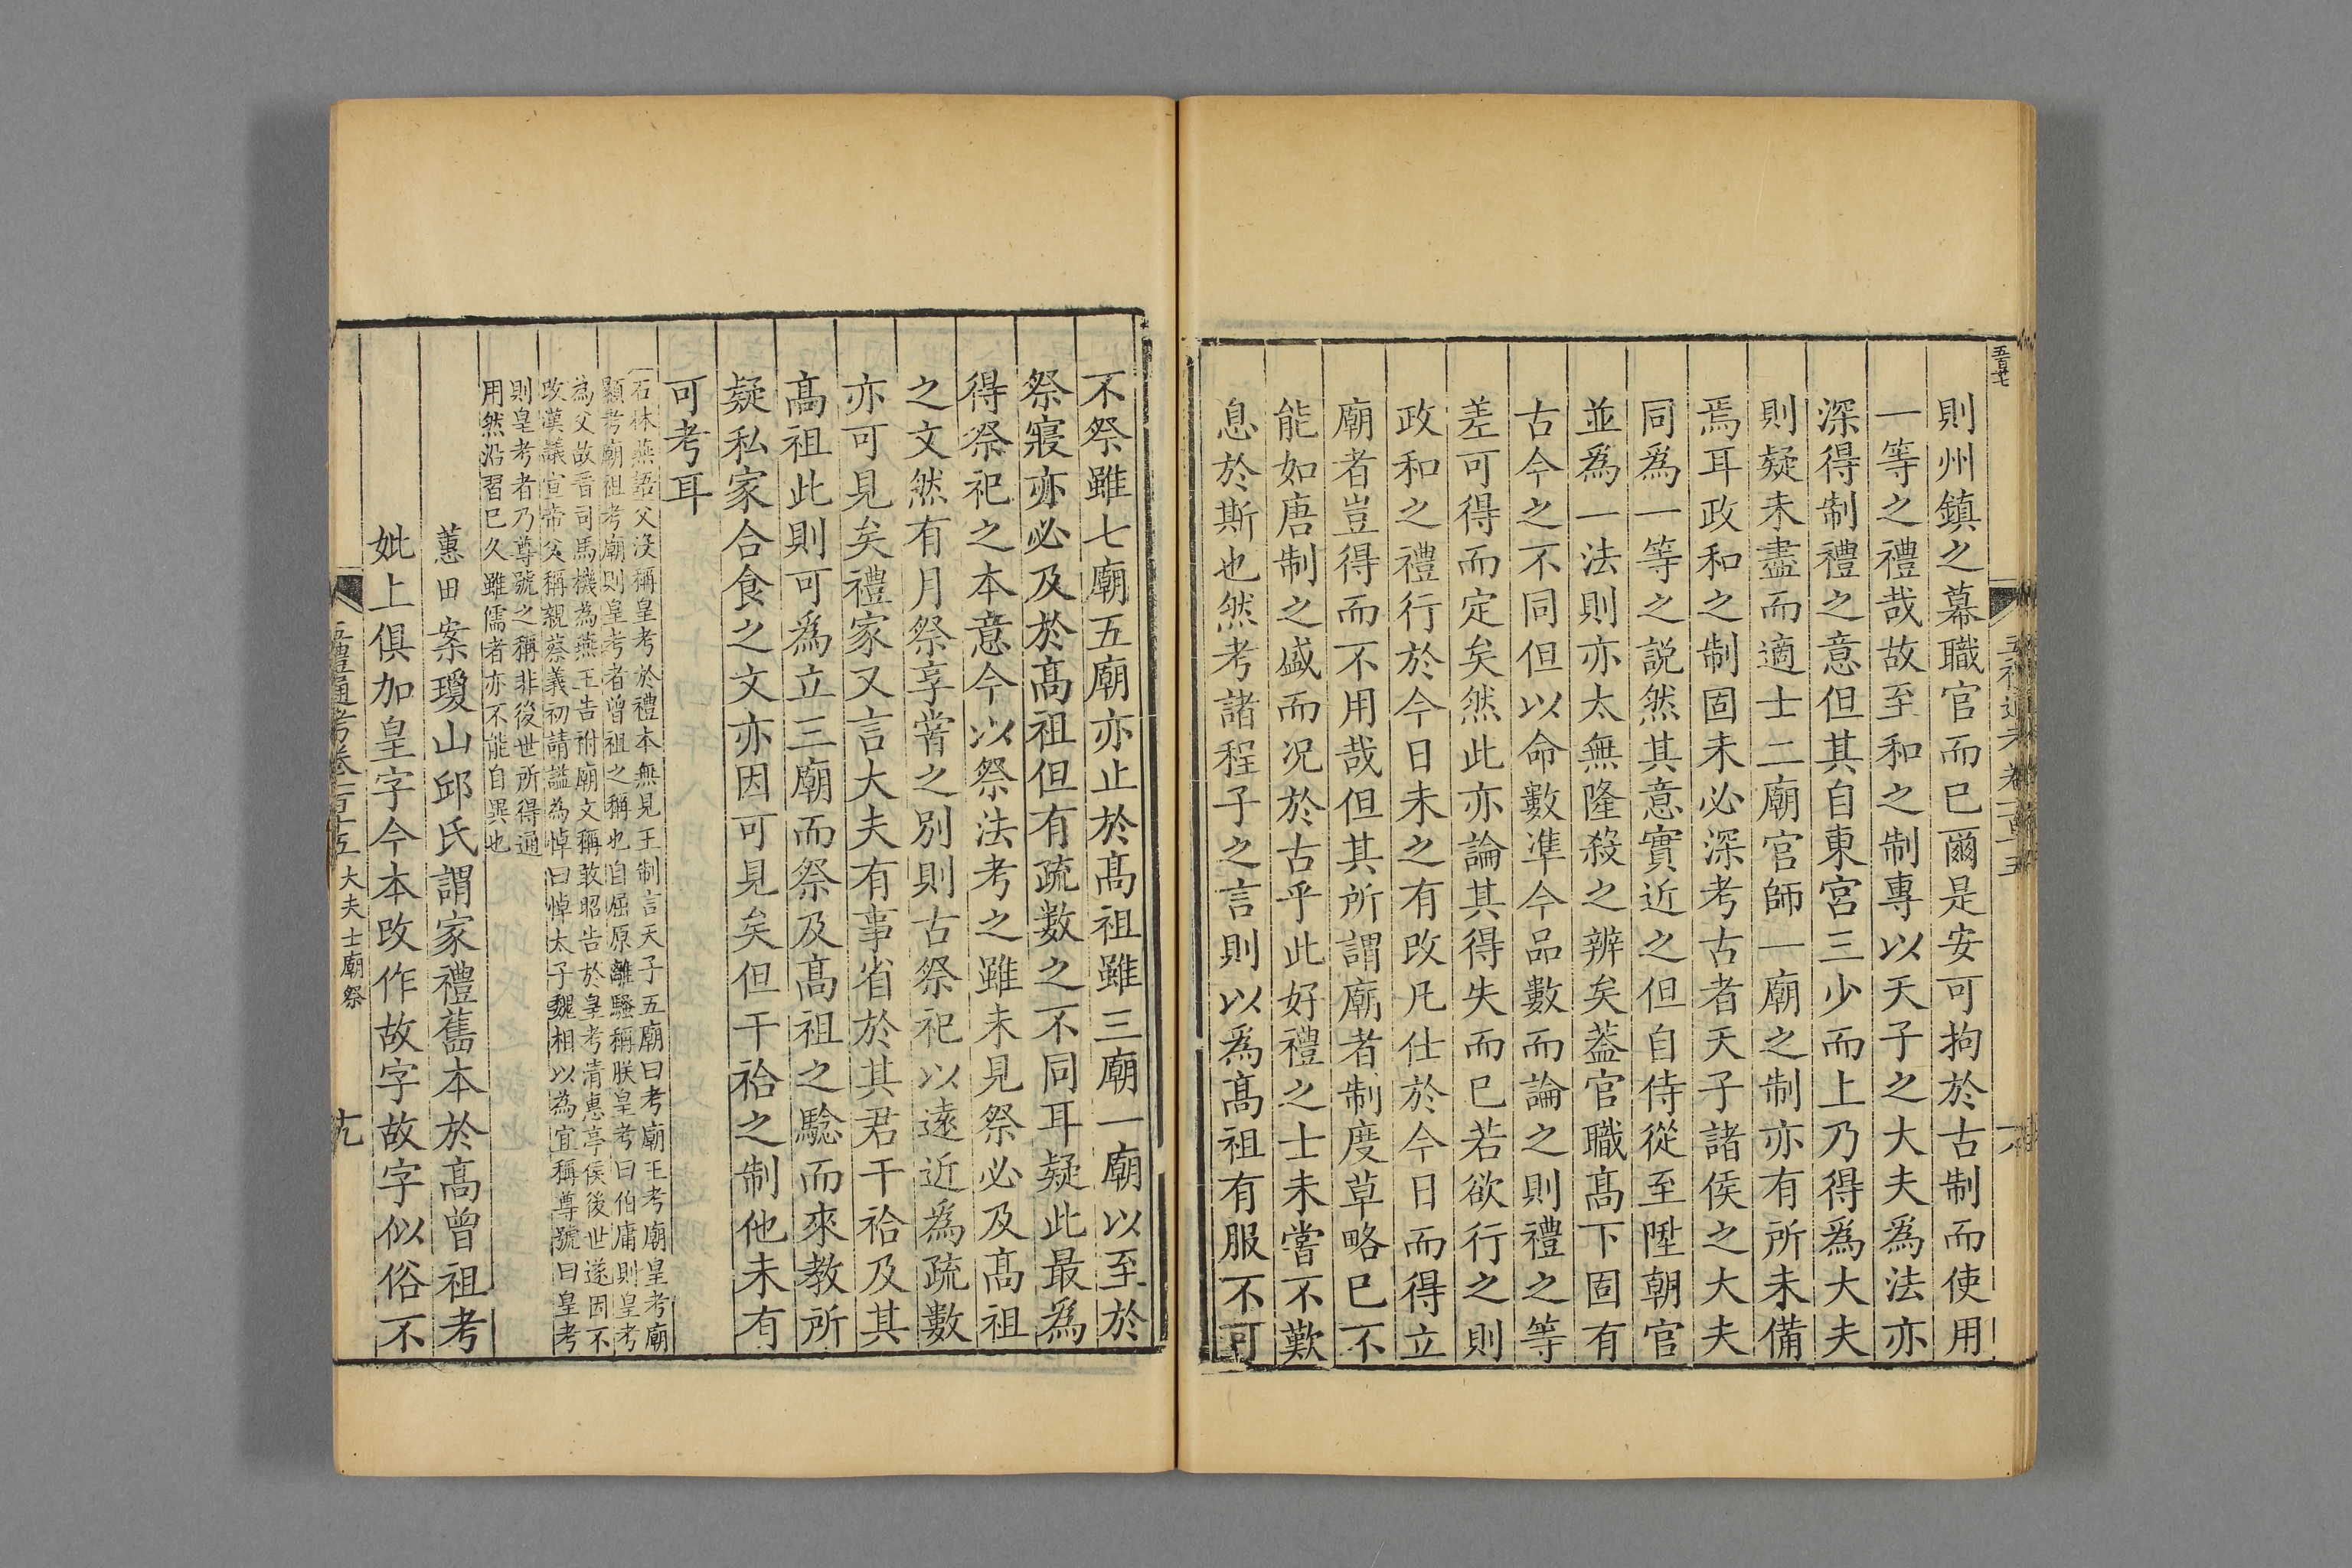 五百廿七
五禮通考卷一百十五
則州鎮之幕職官而已爾是安可拘於古制而使用
一等之禮哉故至和之制專以天子之大夫爲法亦
深得制禮之意但其自東宮三少而上乃得爲大夫
則疑未盡而適士二廟官師一廟之制亦有所未備
焉耳政和之制固未必深考古者天子諸侯之大夫
同爲一等之說然其意實近之但自侍從至陞朝官
並爲一法則亦太無隆殺之辨矣葢官職髙下固有
古今之不同但以命數準今品數而論之則禮之等
差可得而定矣然此亦論其得失而已若欲行之則
政和之禮行於今日未之有改凡仕於今日而得立
廟者豈得而不用哉但其所謂廟者制度草略已不
能如唐制之盛而况於古乎此好禮之士未嘗不歎
息於斯也然考諸程子之言則以爲髙祖有服不可
不祭雖七廟五廟亦止於髙祖雖三廟一廟以至於
祭寢亦必及於髙祖但有疏數之不同耳疑此最爲
得祭祀之本意今以祭法考之雖未見祭必及髙祖
之文然有月祭享嘗之別則古祭祀以遠近爲疏數
亦可見矣禮家又言大夫有事省於其君干祫及其
髙祖此則可爲立三廟而祭及髙祖之驗而來教所
疑私家合食之文亦因可見矣但干祫之制他未有
可考耳
石林燕語父沒稱皇考於禮本無見王制言天子五廟曰考廟王考廟皇考廟
顯考廟祖考廟則皇考者曾祖之稱也自屈原離騷稱朕皇考曰伯庸則皇考
為父故晉司馬機為燕王告祔廟文稱敢昭告於皇考清惠亭侯後世遂因不
改漢議宣帝父稱親蔡義初請謚為悼曰悼太子魏相以為宜稱尊號曰皇考
則皇考者乃尊號之稱非後世所得通
用然沿習已久雖儒者亦不能自異也
蕙田案瓊山邱氏謂家禮舊本於髙曾祖考
妣上俱加皇字今本改作故字故字似俗不
五禮通考卷一百十五 大夫士廟祭